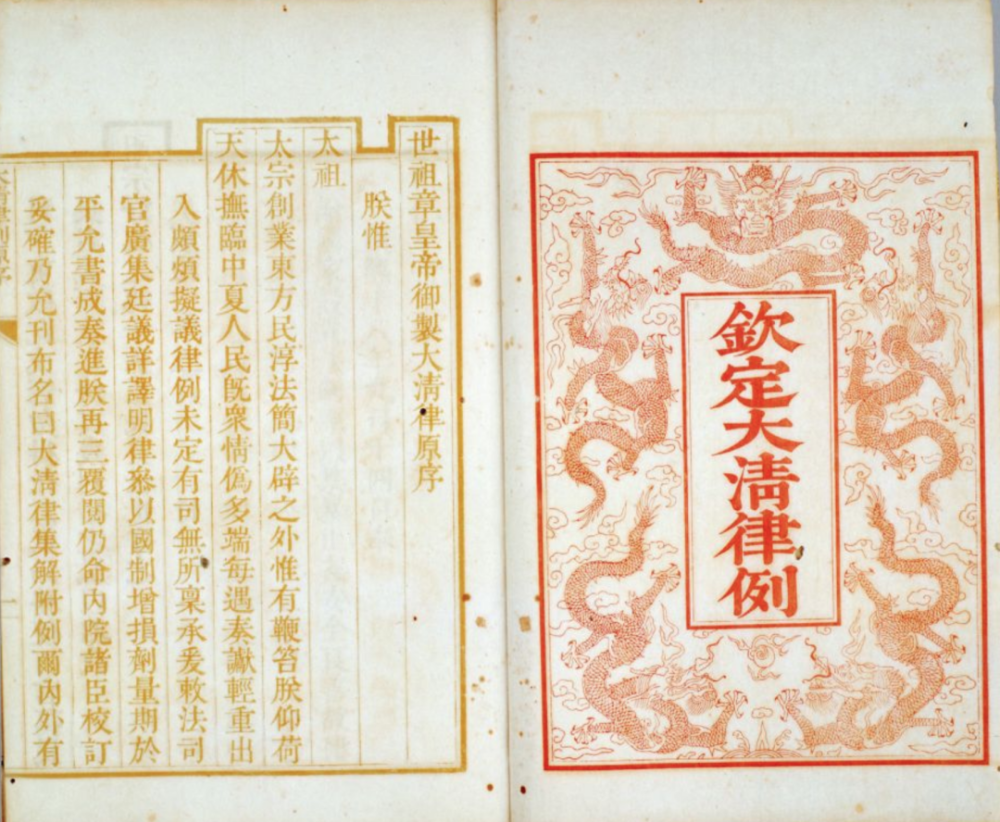 欽定大清律例
世祖章皇帝御製大清律原序
朕惟
太祖
太宗創業東方民淳法簡大辟之外惟有鞭笞朕仰荷
天休撫臨中夏人民旣衆情僞多端每遇奏讞輕重出
入頗煩擬議律例未定有司無所稟承爰敕法司
官廣集廷議詳譯明律叅以國制增損劑量期於
平允書成奏進朕再三覆閱仍命內院諸臣校訂
妥確乃允刊布名曰大清律集解附例爾內外有